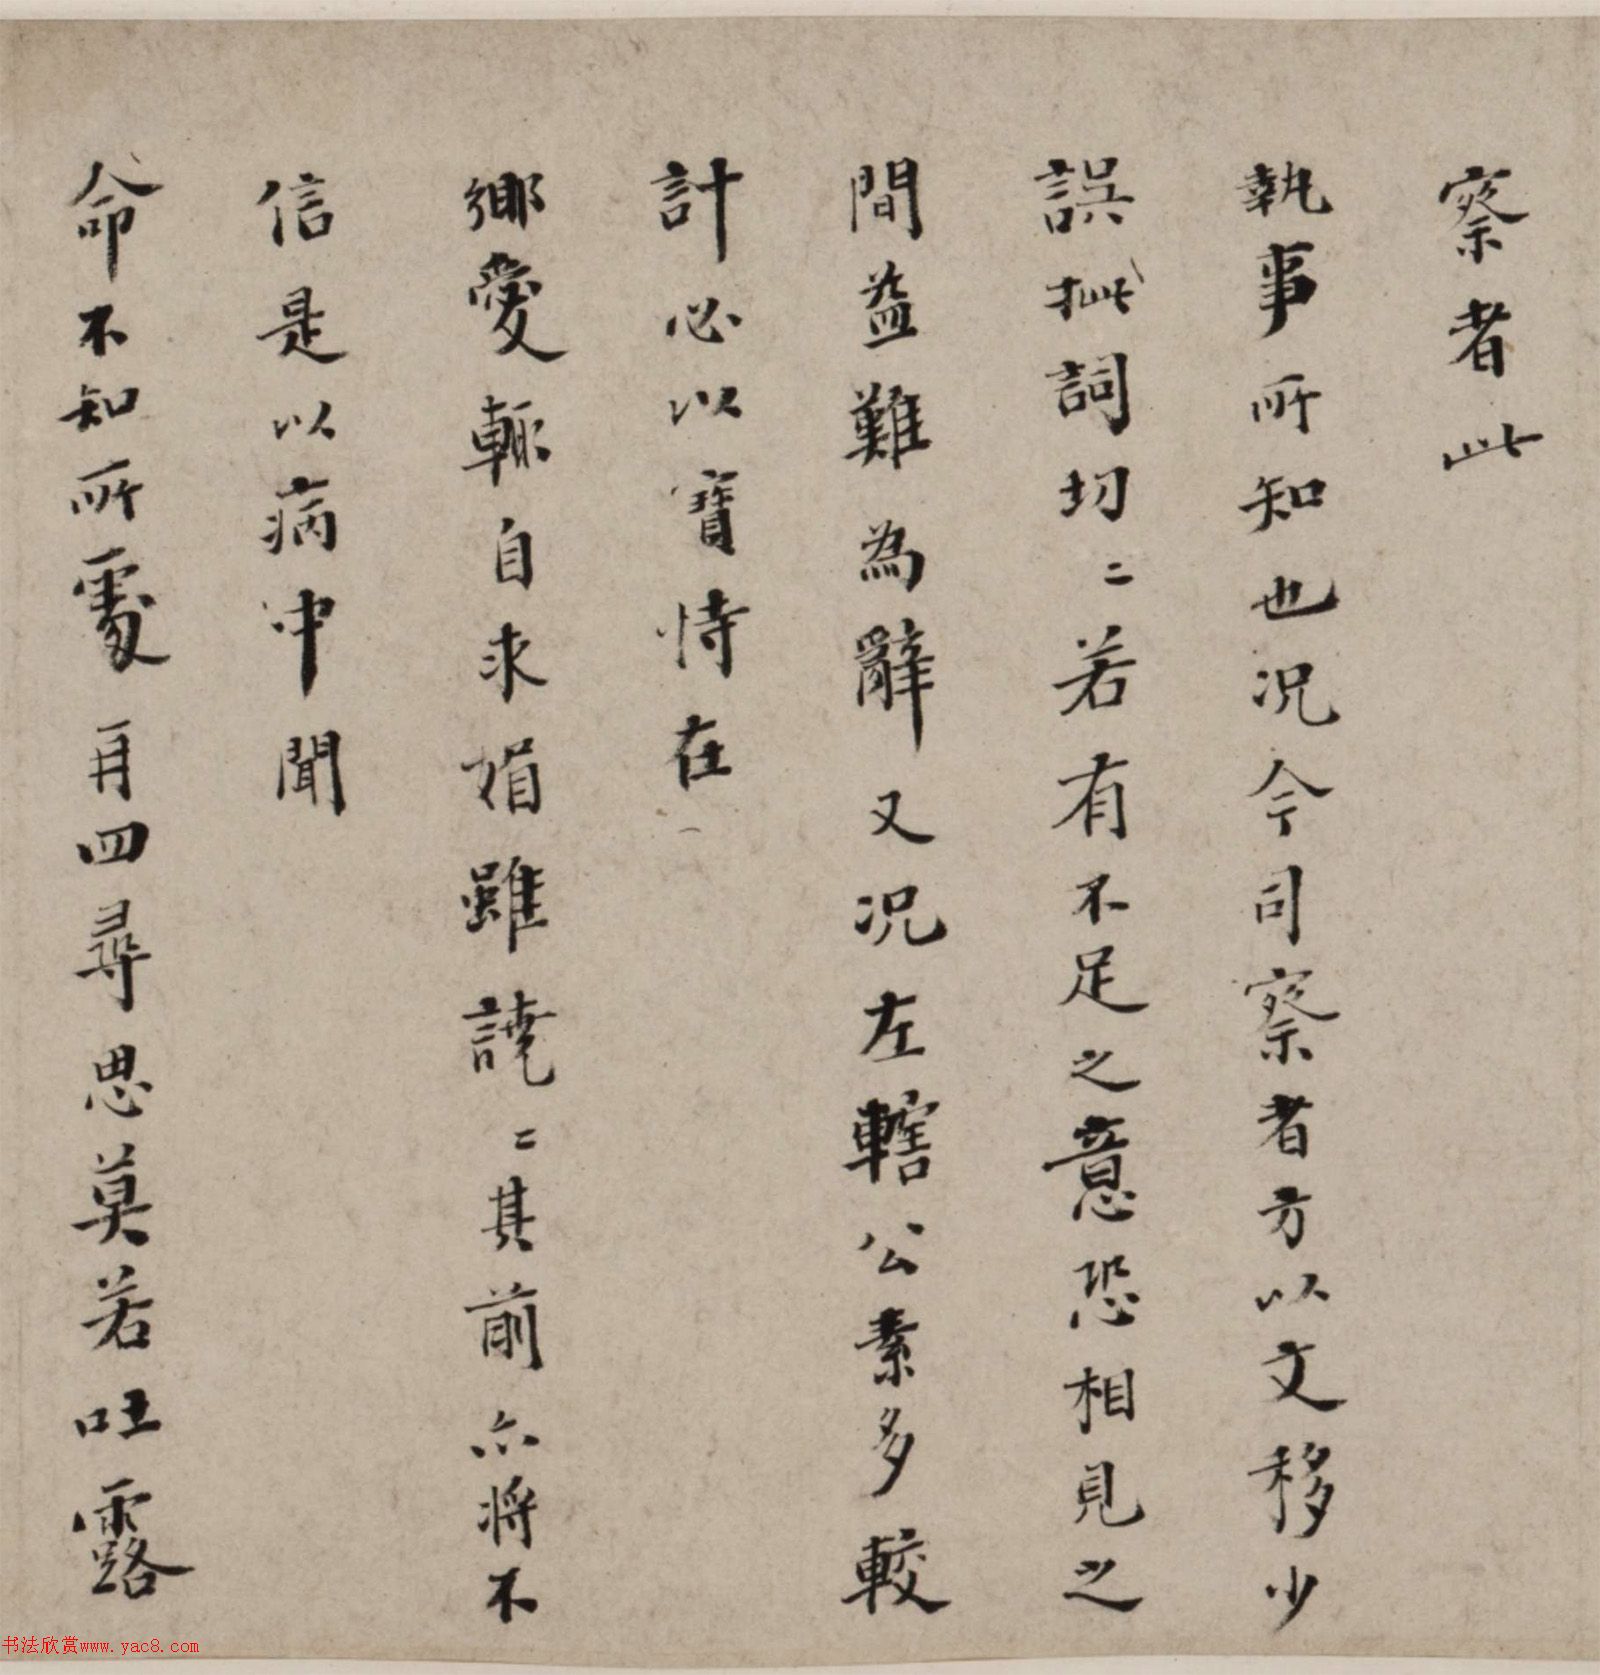 察者此
執事所知也况今司察者方以文移少
誤枇詞切〻若有不足之意恐相見之
間益難為辭又况左轄公素多較
計必以寶恃在
鄉愛輒自求媢雖譊〻其前亦將不
信是以病中聞
命不知所處再四尋思莫若吐露
书法欣赏www.yac8.com